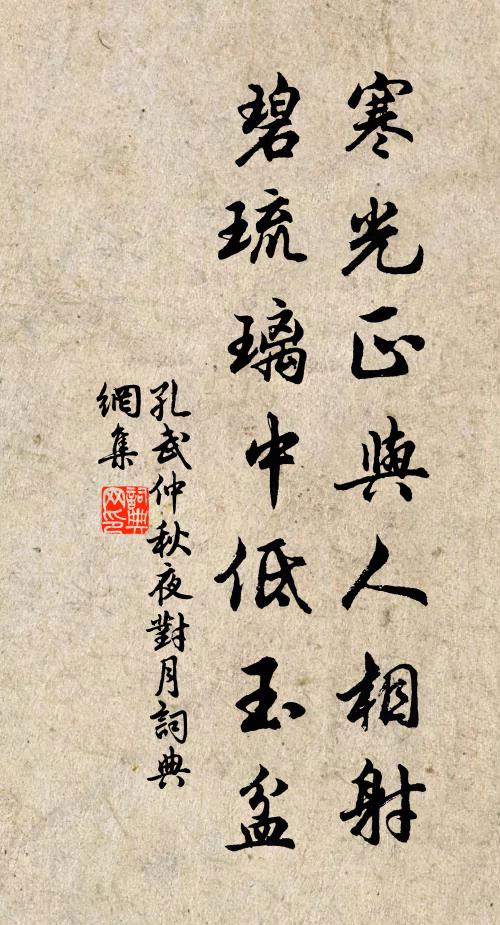 寒光正與人相射
碧琉璃中低玉盆
孔武仲秋夜對月詞典
網集
詞典
网印